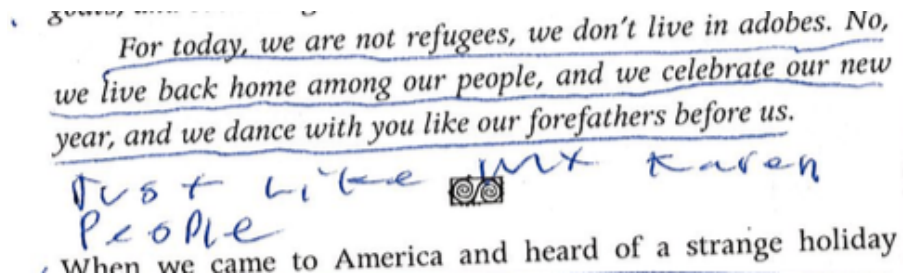 goats, and
For today, we are not refugees, we don't live in adobes. No,
we live back home among our people, and we celebrate our new
year, and we dance with you like our forefathers before us.
Just Like My Karen
People
When we came to America and heard of a strange holiday